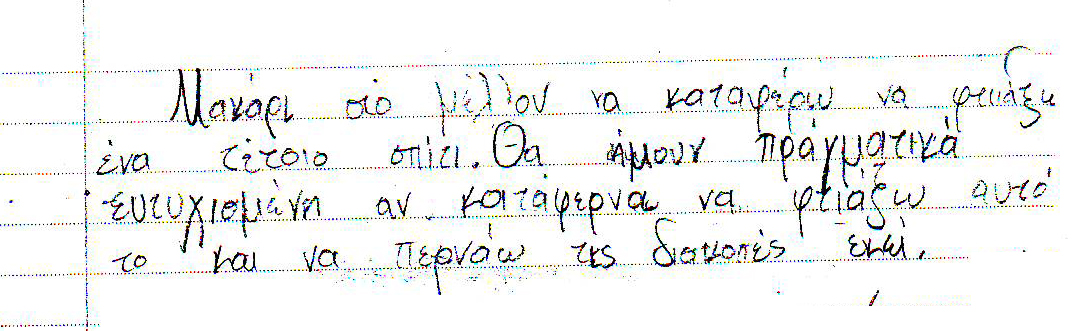 Μακάρι στο μέλλον να καταφέρω να φτιάξω
ένα τέτοιο σπίτι. Θα ήμουν πράγματικά
ευτυχισμένη αν κατάφερνα να φτιάξω αυτό
το και να περνάω τις διακοπές εκεί.